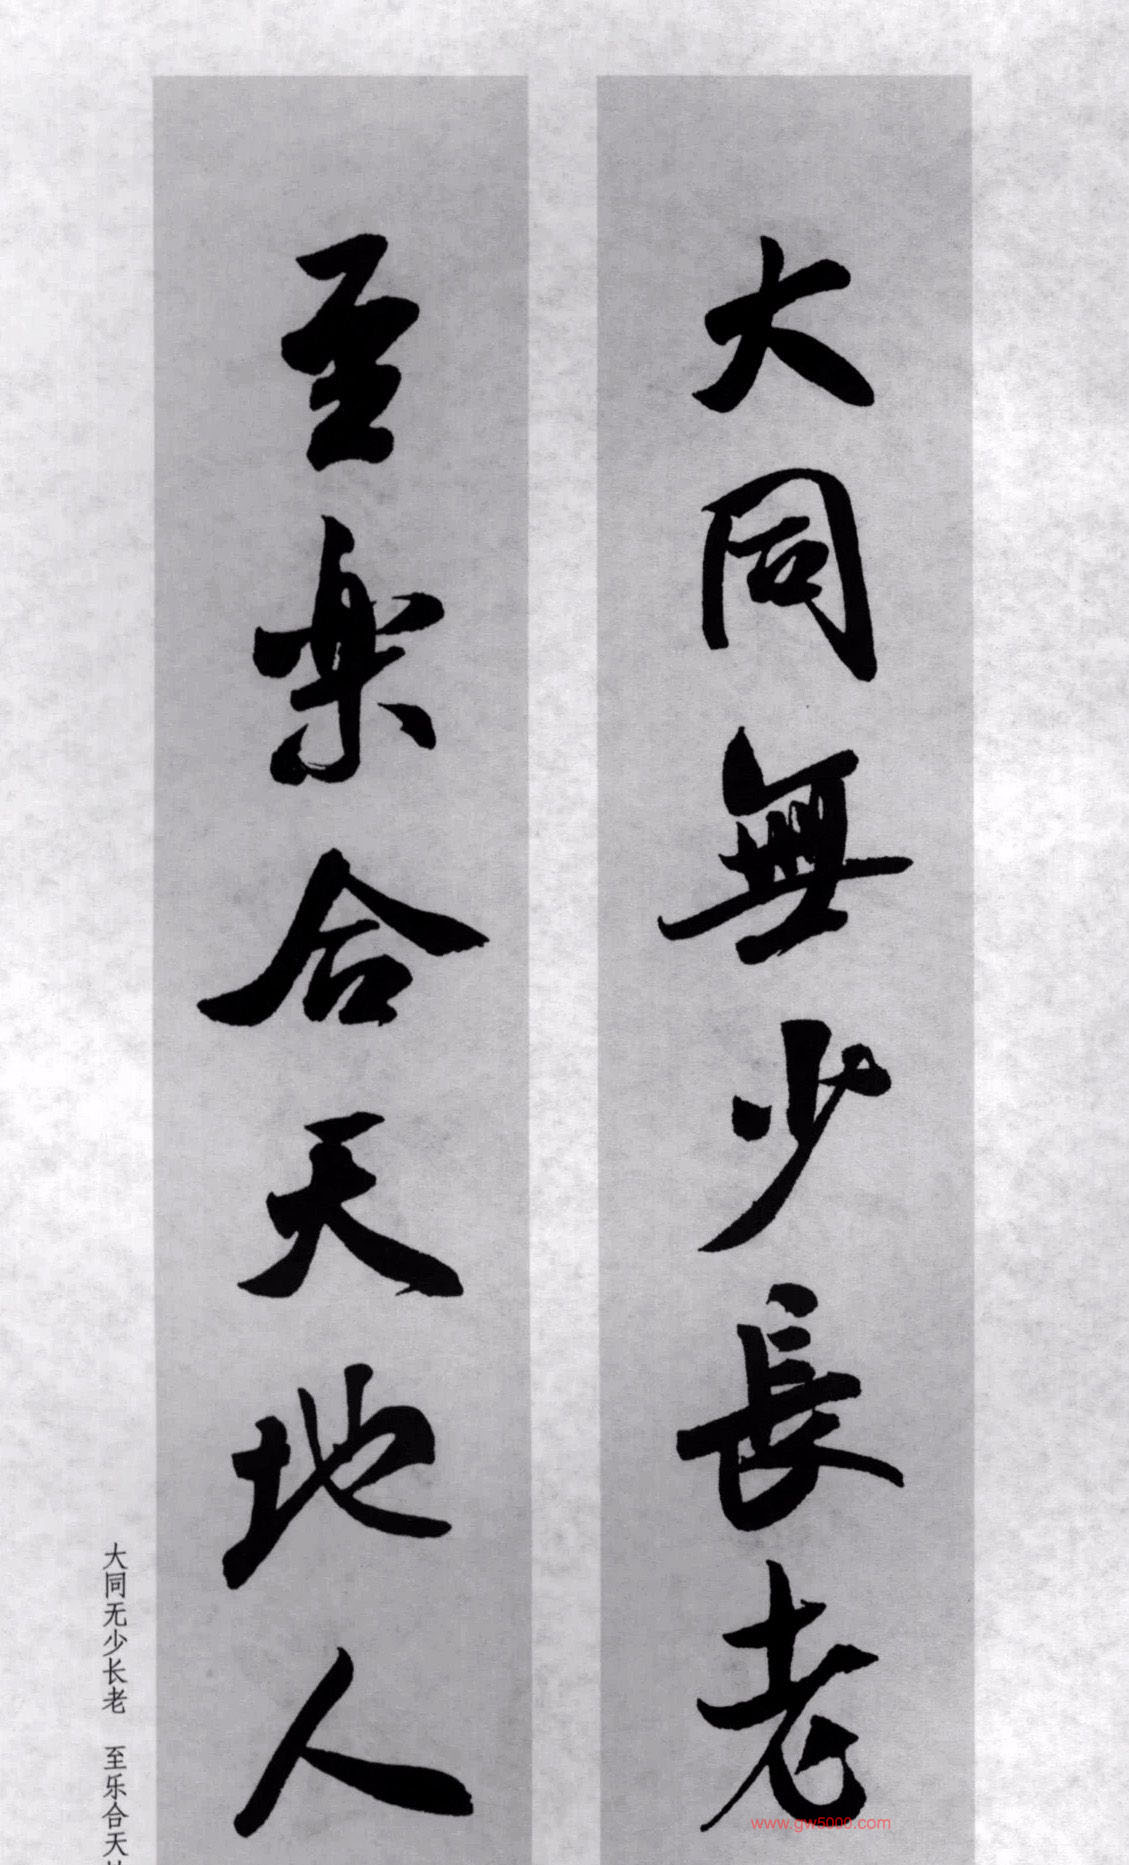 大同無少長老
至楽合天地人
大同无少长老 至乐合天
www.gw5000.com